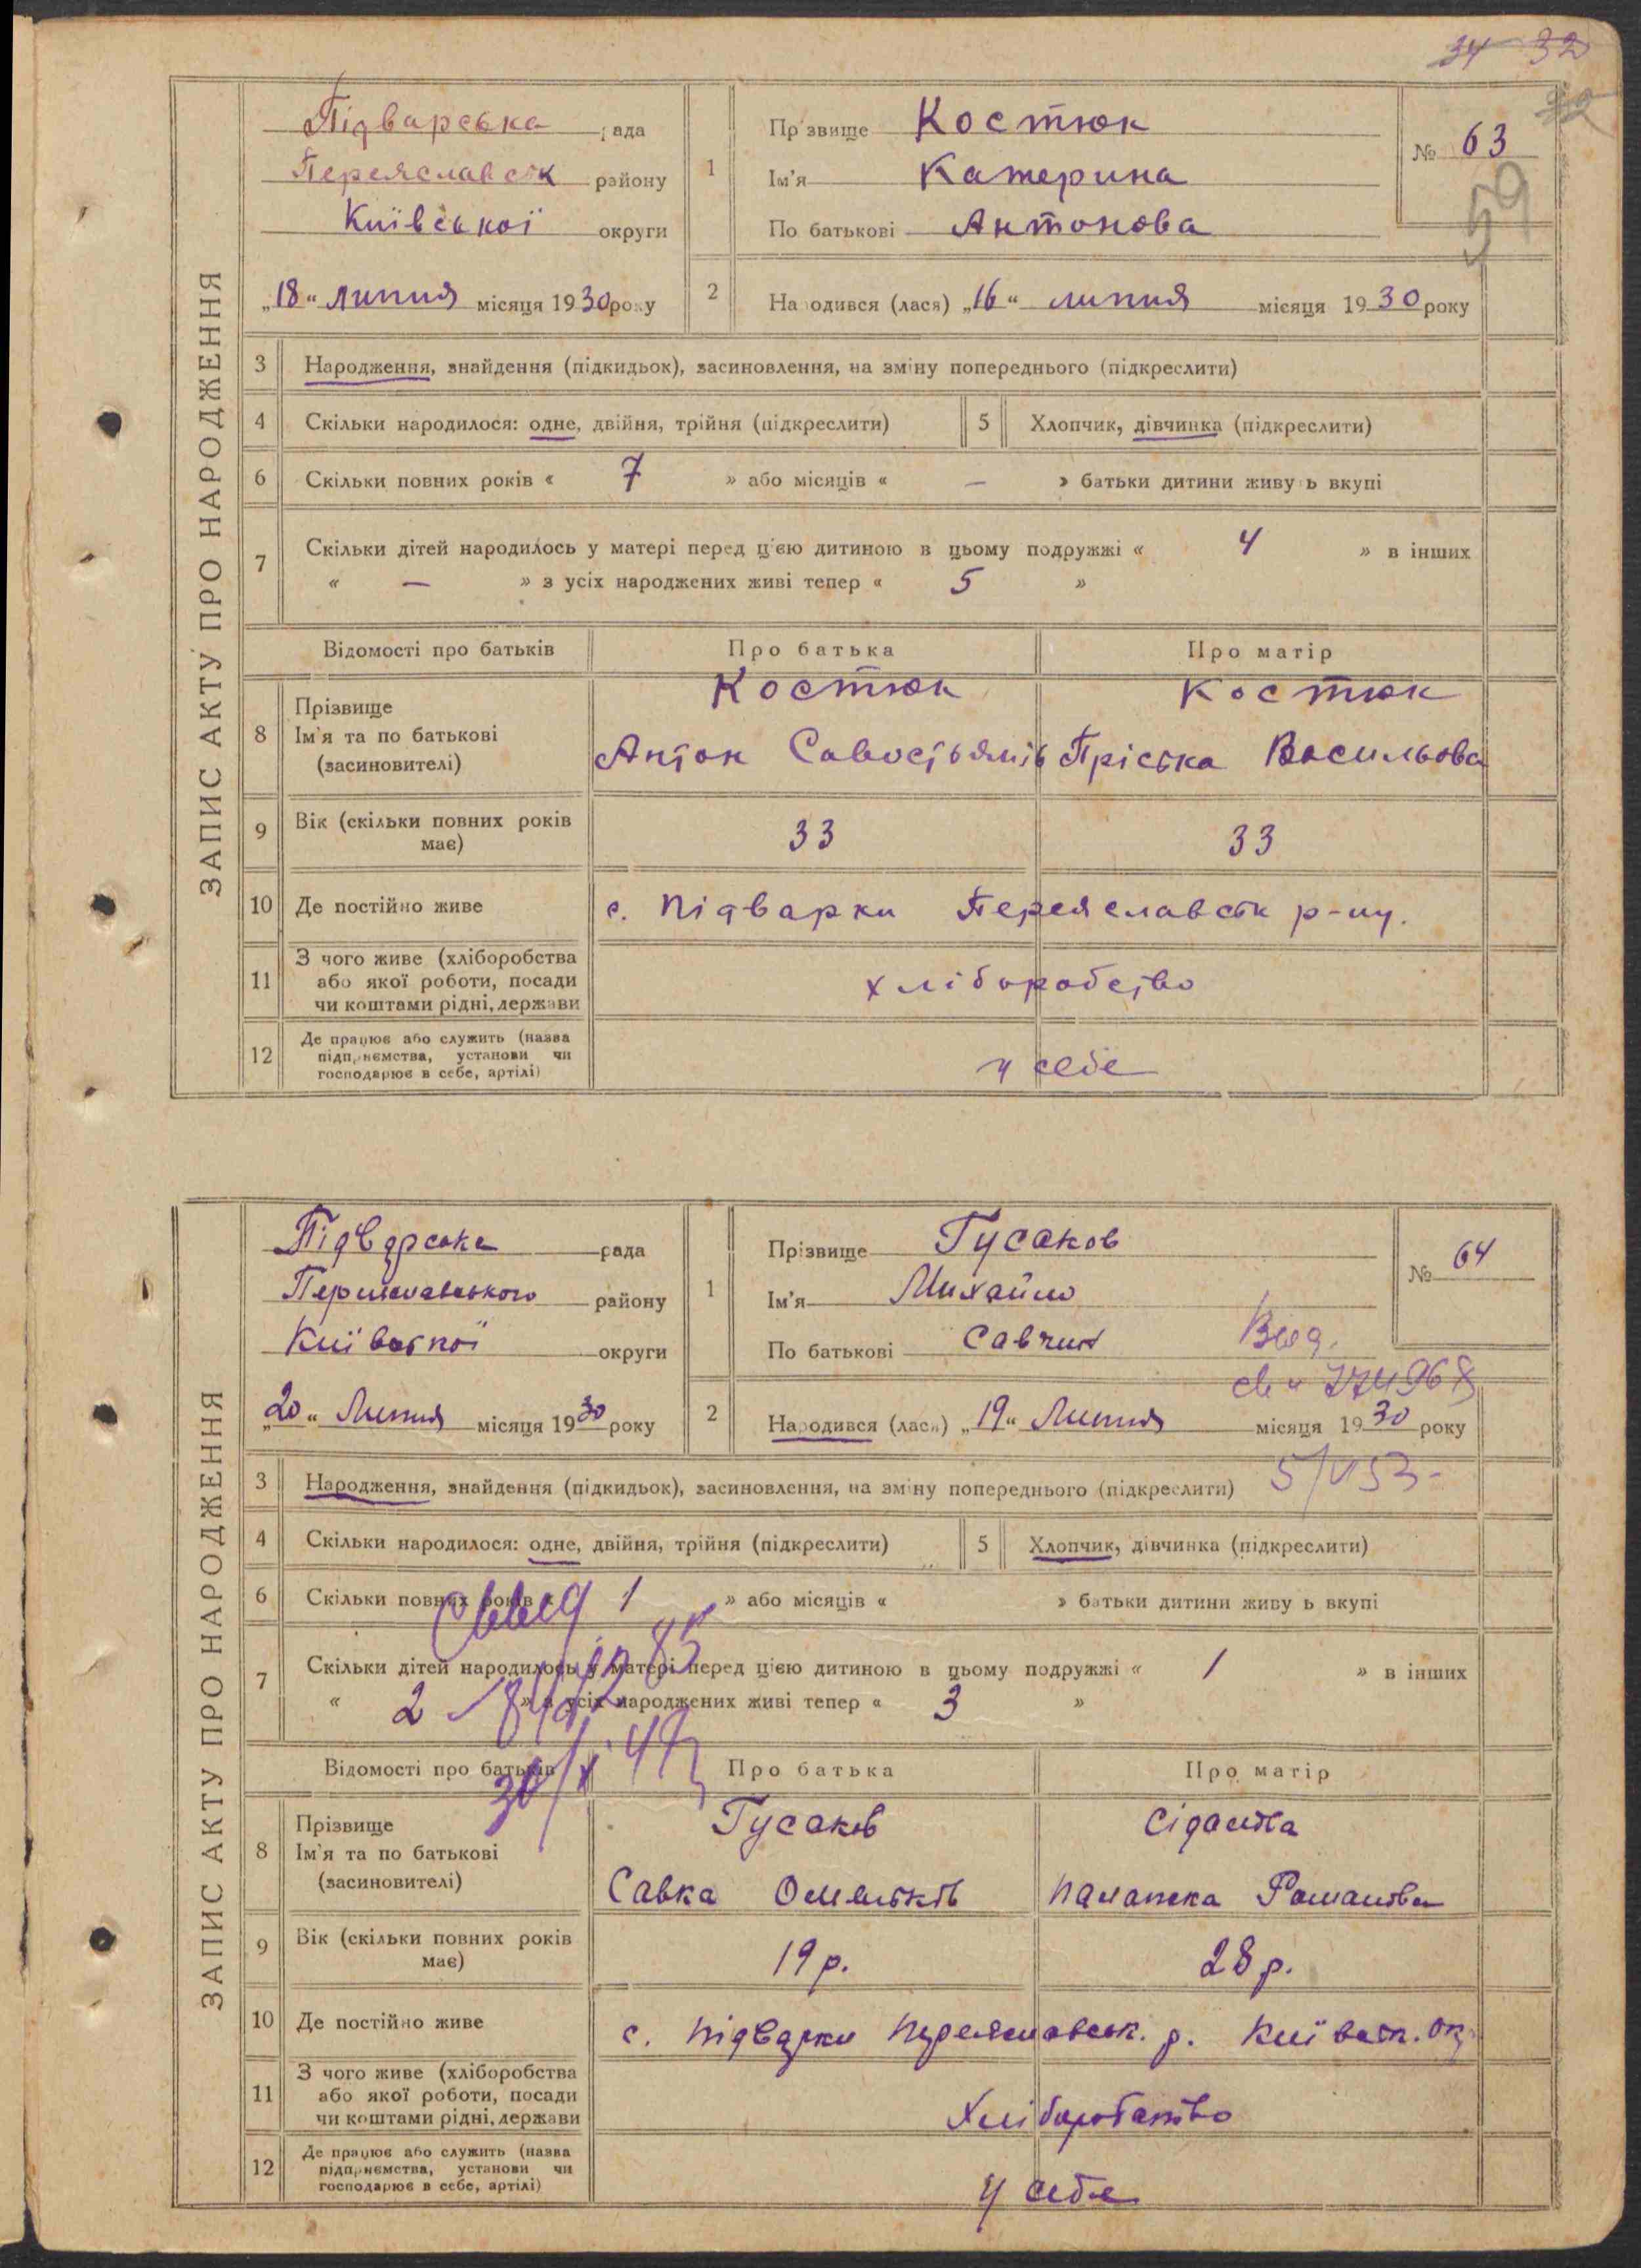 34 32
32
ЗАПИС АКТУ ПРО НАРОДЖЕННЯ
Підварська рада
Переяславськ району
Київської округи
„18“ липня місяця 1930 року
1 Прізвище Костюк
Ім'я Катерина
По батькові Антонова
№ 63
59
2 Народився (лася) „16“ липня місяця 1930 року
3 Народження, знайдення (підкидьок), засиновлення, на зміну попереднього (підкреслити)
4 Скільки народилося: одне, двійня, трійня (підкреслити) 5 Хлопчик, дівчинка (підкреслити)
6 Скільки повних років « 7 » або місяців « — » батьки дитини живуть вкупі
7 Скільки дітей народилось у матері перед цією дитиною в цьому подружжі « 4 » в інших
« — » з усіх народжених живі тепер « 5 »
Відомості про батьків Про батька Про матір
8 Прізвище Ім'я та по батькові (засиновителі)
Костюк Костюк
Антон Савостьянів Пріська Васильова
9 Вік (скільки повних років має) 33 33
10 Де постійно живе с. Підварки Переяславськ р-ну.
11 З чого живе (хліборобства або якої роботи, посади чи коштами рідні, держави хліборобство
12 Де працює або служить (назва підприємства, установи чи господарює в себе, артілі) у себе
ЗАПИС АКТУ ПРО НАРОДЖЕННЯ
Підварська рада
Переяславського району
Київської округи
„20“ Липня місяця 1930 року
1 Прізвище Гусаков
Ім'я Михайло
По батькові Савчин
№ 64
2 Народився (лася) „19“ Липня місяця 1930 року
3 Народження, знайдення (підкидьок), засиновлення, на зміну попереднього (підкреслити)
4 Скільки народилося: одне, двійня, трійня (підкреслити) 5 Хлопчик, дівчинка (підкреслити)
6 Скільки повних років « 1 » або місяців « » батьки дитини живуть вкупі
7 Скільки дітей народилось у матері перед цією дитиною в цьому подружжі « 1 » в інших
« 2 » з усіх народжених живі тепер « 3 »
Відомості про батьків Про батька Про матір
8 Прізвище Ім'я та по батькові (засиновителі)
Гусаков
Савка Омельків Палажка Романова
9 Вік (скільки повних років має) 19 р. 28 р.
10 Де постійно живе с. Підварки Переяславськ. р. Київськ. ок.
11 З чого живе (хліборобства або якої роботи, посади чи коштами рідні, держави Хліборобство
12 Де працює або служить (назва підприємства, установи чи господарює в себе, артілі) У себе